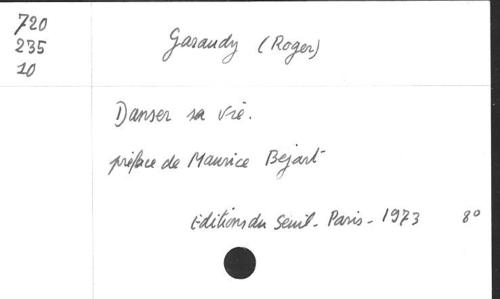 720
235
10
Garaudy (Roger)
Danser sa vie.
préface de Maurice Bejart
Editions du Seuil - Paris - 1973 8°